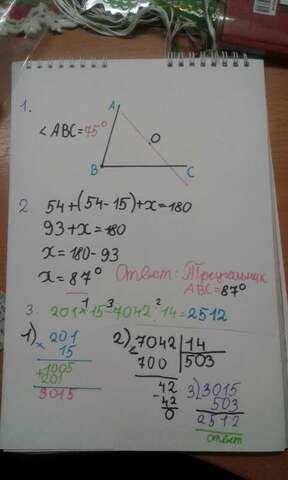 1.
A
O
< ABC = 75°
B C
2. 54+(54-15)+x=180
93+x=180
x=180-93
x=87° Ответ: Треугольник
ABC=87°
1 3 2
3. 201×15-7042:14=2512
1) × 201
15
+ 1005
201
3015
2) 7042 | 14
700 | 503
42
- 42
0
3) 3015
503
2512
ответ